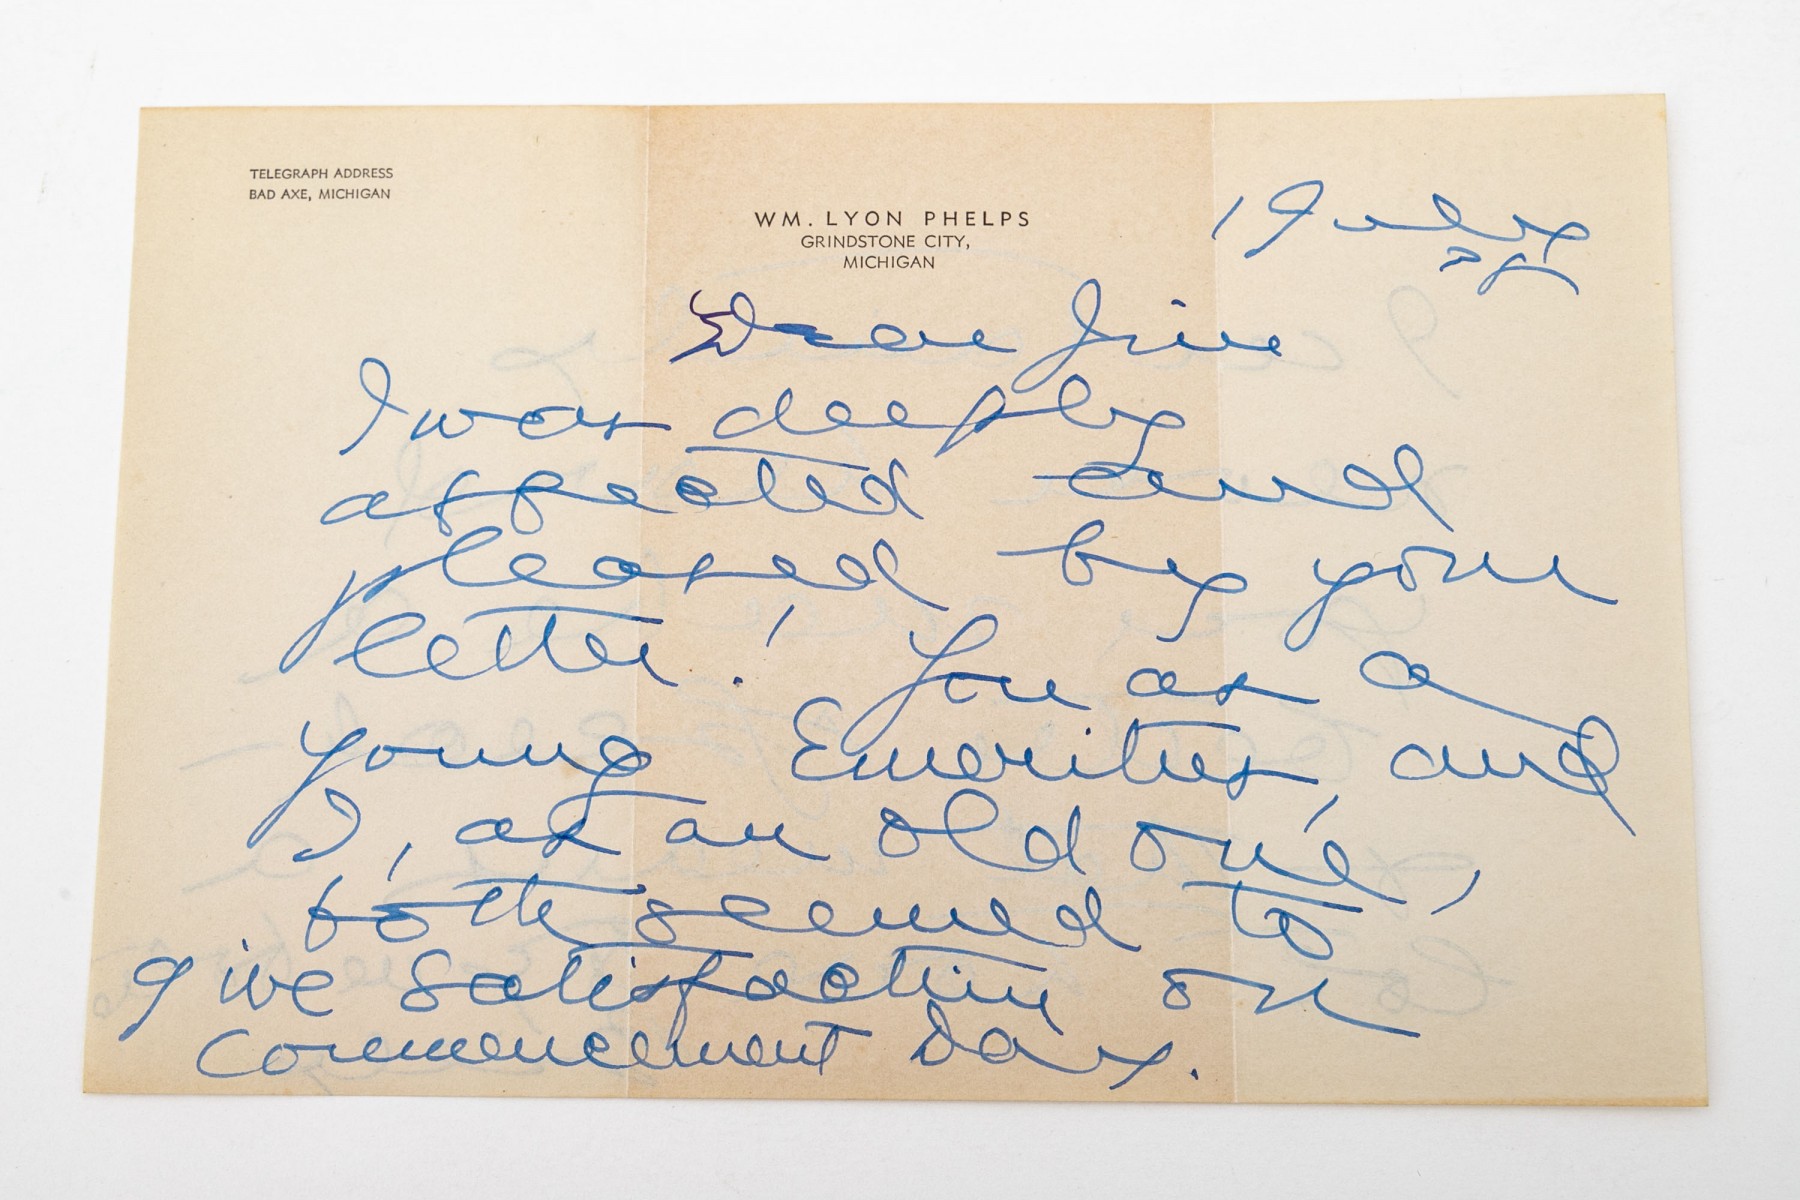 TELEGRAPH ADDRESS
BAD AXE, MICHIGAN
WM. LYON PHELPS
GRINDSTONE CITY,
MICHIGAN
1 July
Dear Jim
I was deeply
affected and
pleased by your
letter! You as a
young Emeritus, and
I, as an old one,
both seemed to
give satisfaction on
Commencement Day.